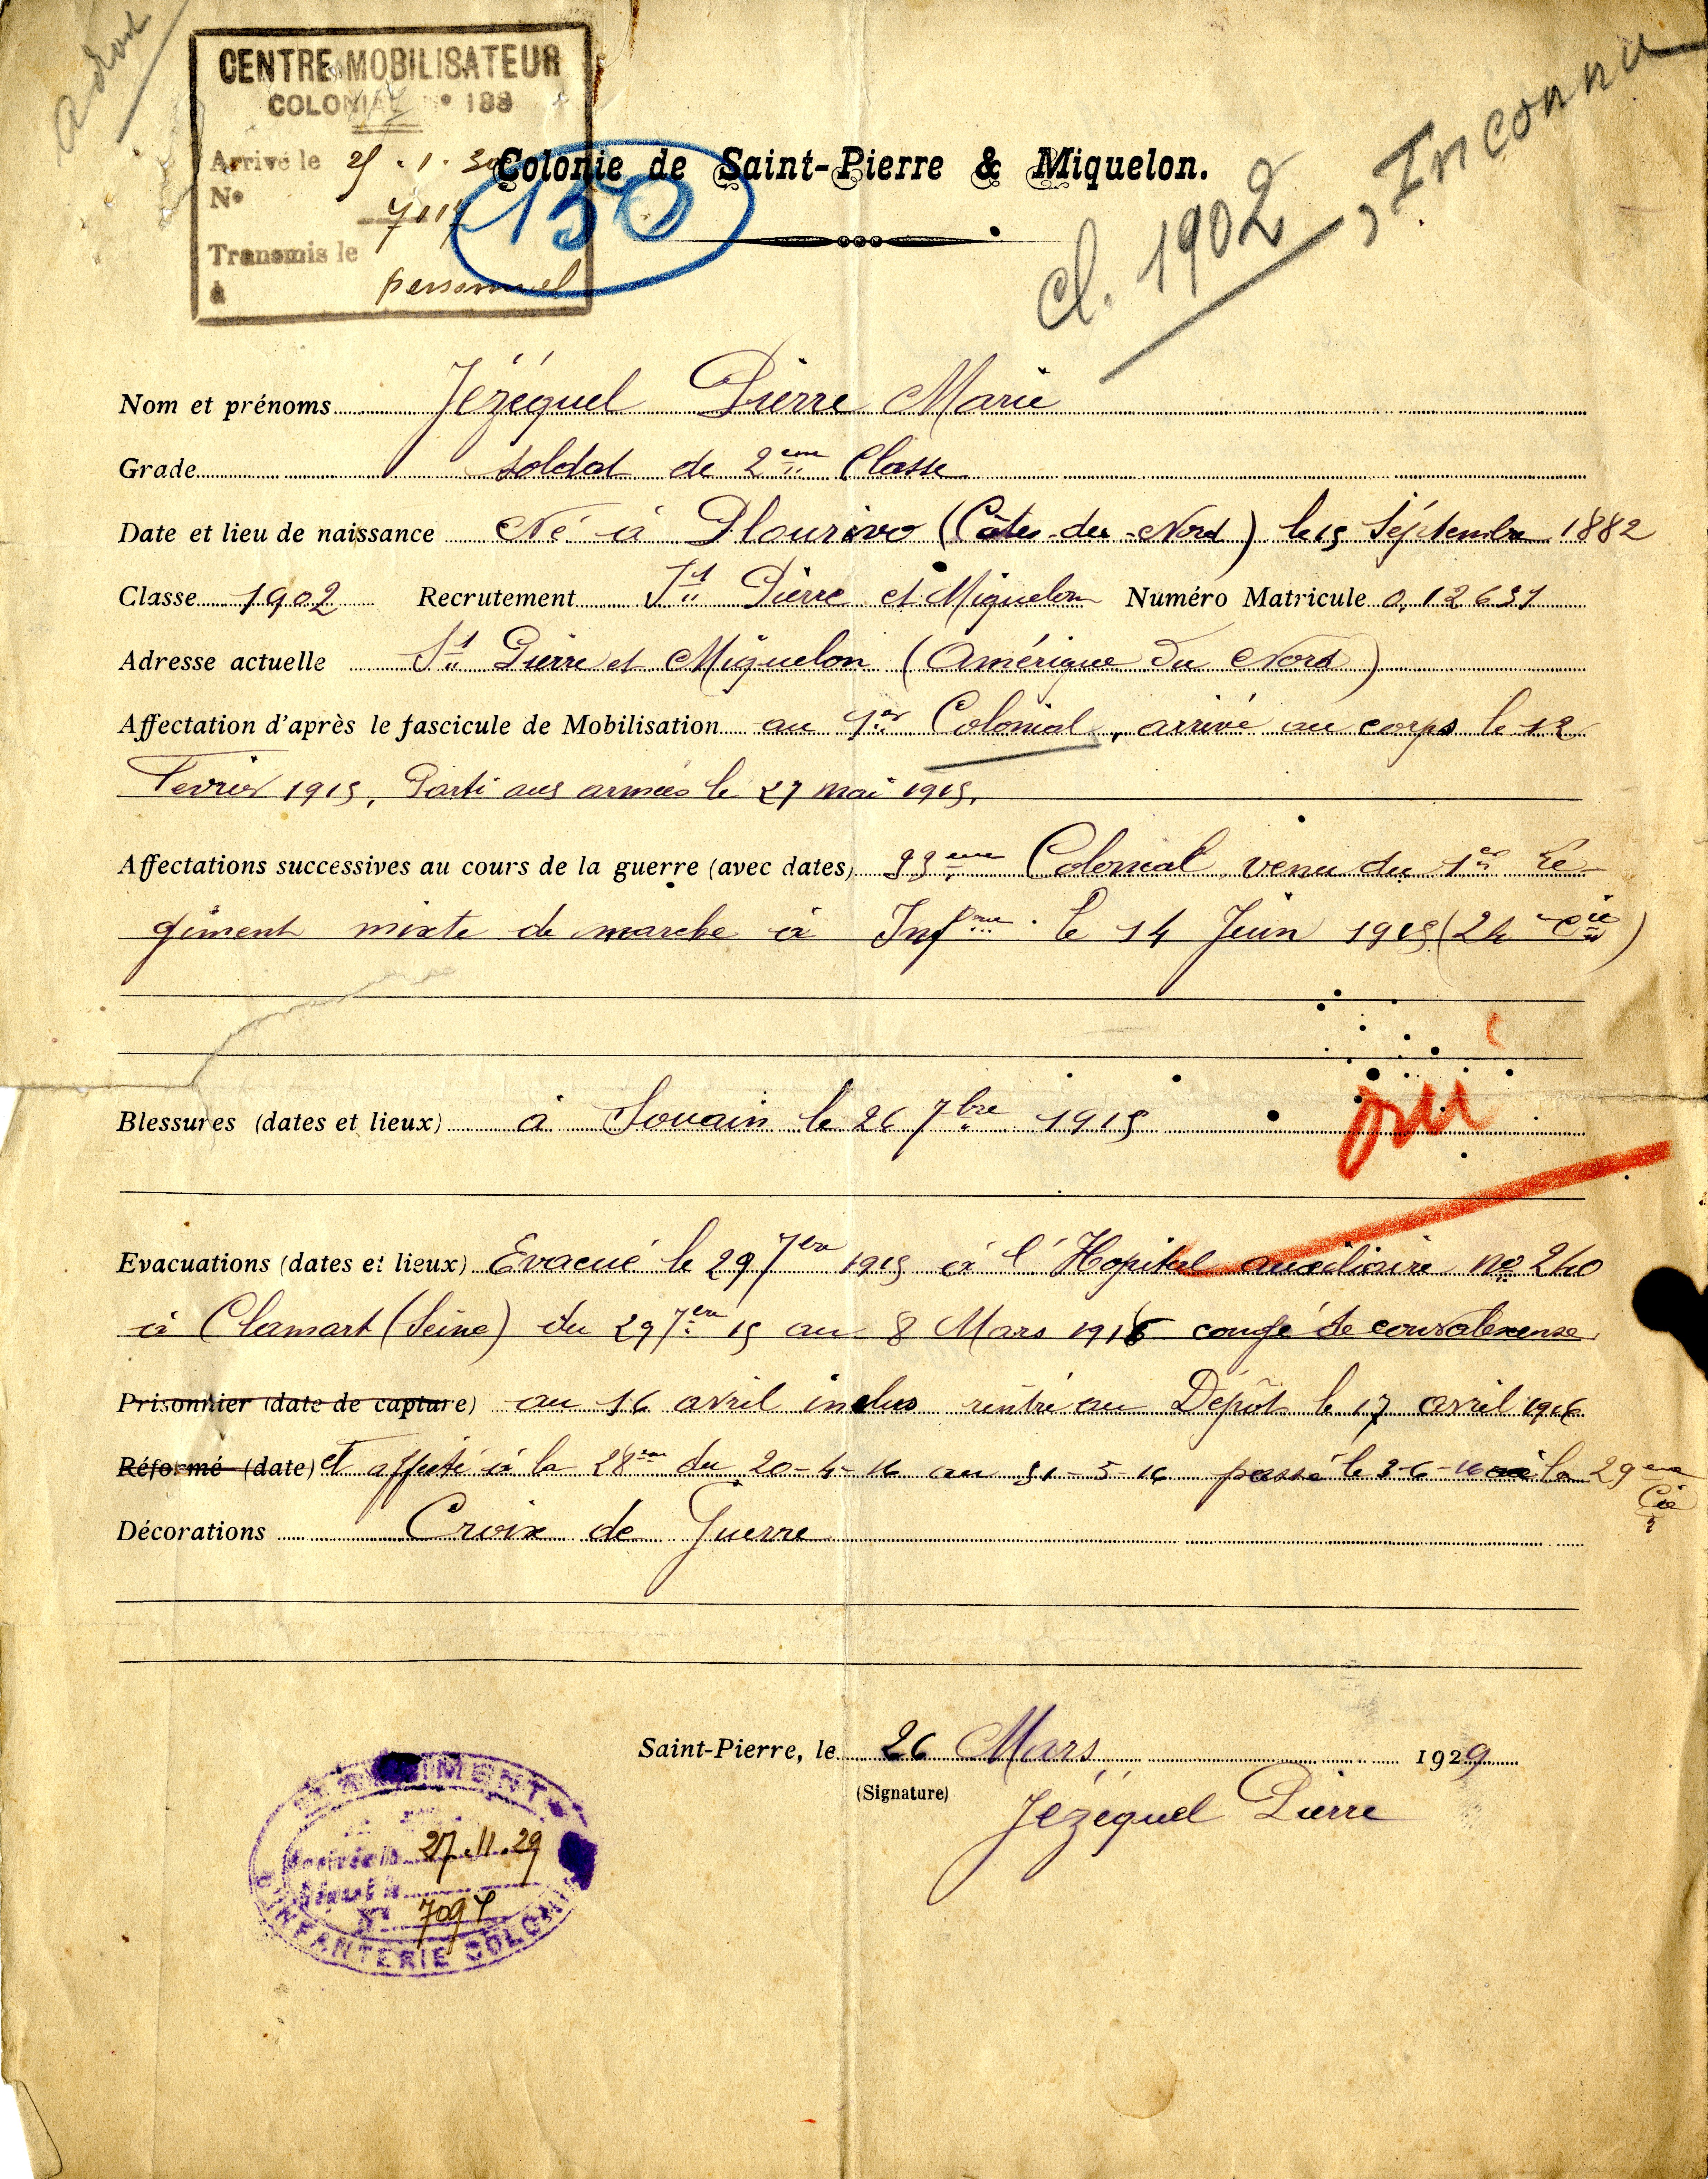 CENTRE MOBILISATEUR
COLONIAL N° 188
Arrivé le 25.1.30
N°
Transmis le
à personnel
150
Colonie de Saint-Pierre & Miquelon.
cl. 1902, Inconnu
Nom et prénoms Jézéquel Pierre Marie
Grade soldat de 2ème Classe
Date et lieu de naissance Né à Plourivo (Côtes-du-Nord) le 15 Séptembre 1882
Classe 1902 Recrutement St Pierre et Miquelon Numéro Matricule 0,12631
Adresse actuelle St Pierre et Miquelon (Amérique du Nord)
Affectation d'après le fascicule de Mobilisation au 1er Colonial, arrivé au corps le 12
Fevrier 1915, Parti aux armées le 27 mai 1915,
Affectations successives au cours de la guerre (avec dates) 33ème Colonial venu du 1er Ré-
giment mixte de marche à Infrie. le 14 Juin 1915 (24 me Cie)
Blessures (dates et lieux) à Souain le 26 7bre 1915 oui
Evacuations (dates et lieux) Evacué le 29 7bre 1915 à l'Hopital auxiliaire no 240
à Clamart (Seine) du 29 7bre 15 au 8 Mars 1916 congé de convalexense
Prisonnier (date de capture) au 16 avril inclus rentré au Dépôt le 17 avril 1916
Réformé (date) et affecté à la 28em du 20-4-16 au 31-5-16 passé le 3-6-16 à la 29ème Cie
Décorations Croix de Guerre
Saint-Pierre, le 26 Mars 1929
(Signature)
Jézéquel Pierre
RÉGIMENT
27.11.29
N° 7097
D'INFANTERIE COLONIALE